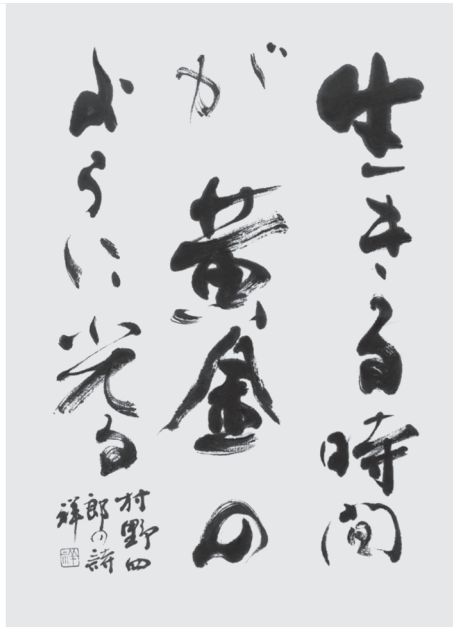 生きる時間
が黄金の
ように光る
村野四
郎の詩
祥